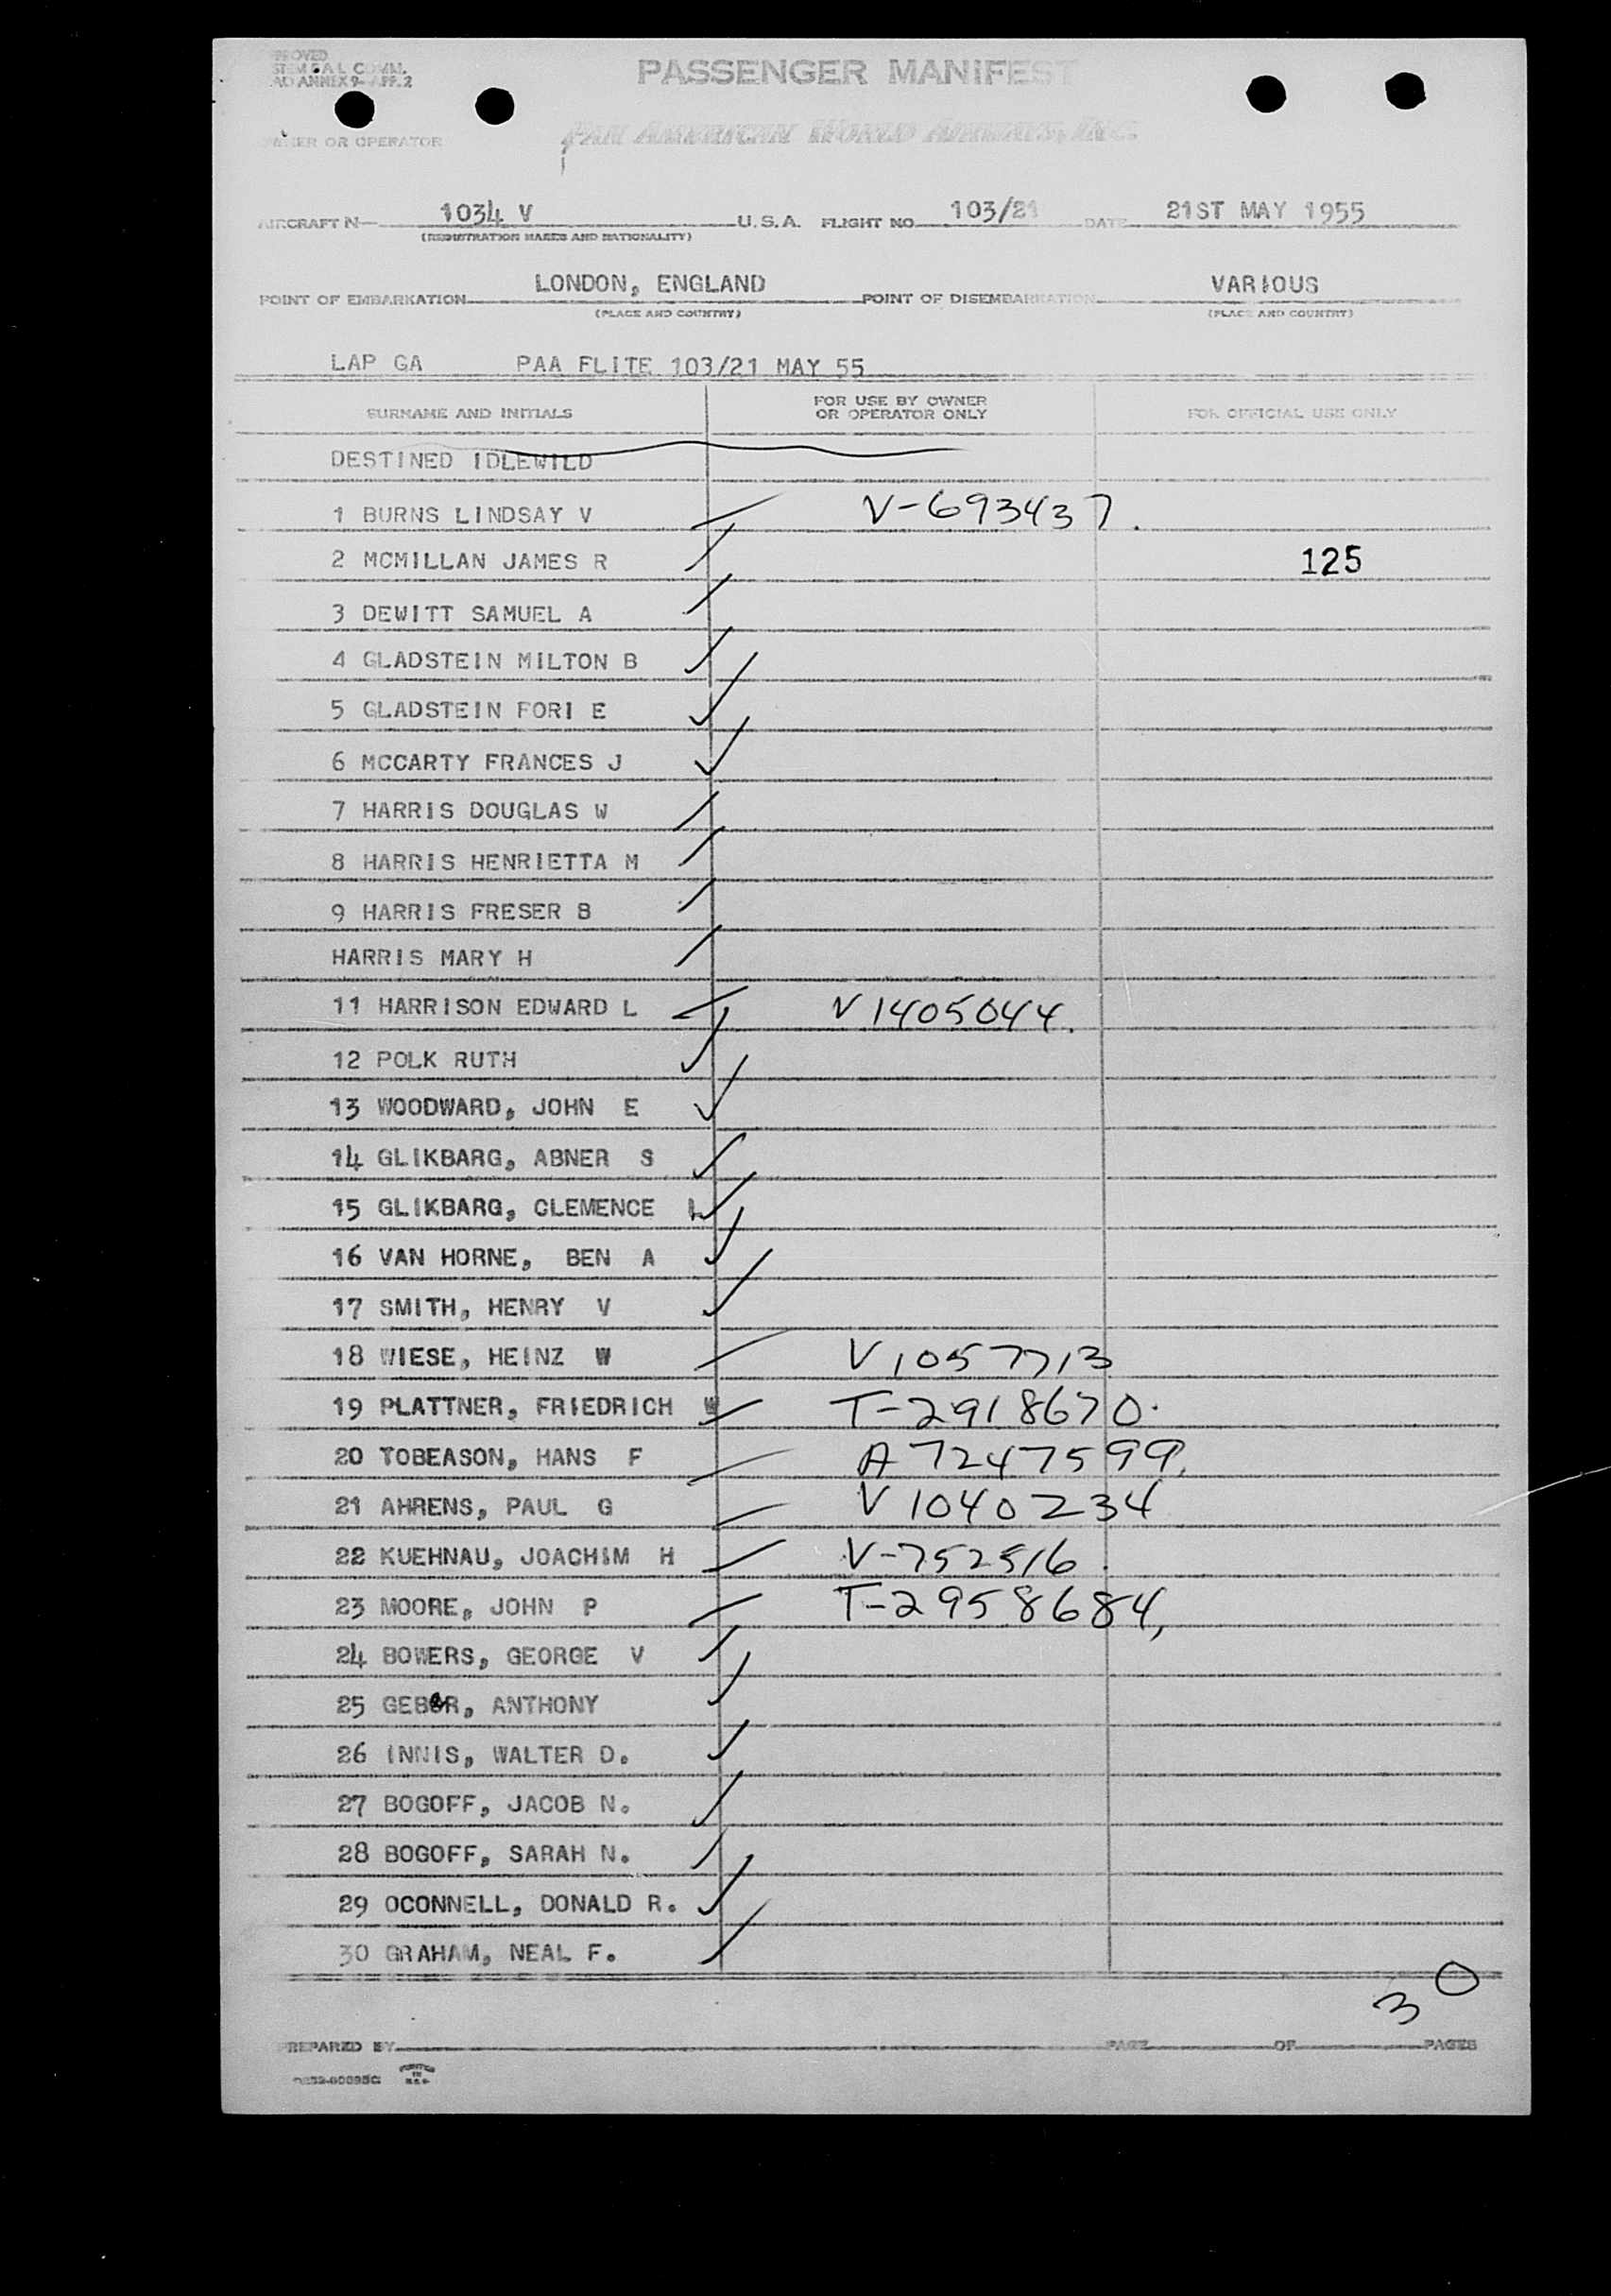 PASSENGER MANIFEST
OWNER OR OPERATOR PAN AMERICAN WORLD AIRWAYS, INC.
AIRCRAFT N— 1034 V U.S.A. FLIGHT NO. 103/21 DATE 21ST MAY 1955
(REGISTRATION MARKS AND NATIONALITY)
POINT OF EMBARKATION LONDON, ENGLAND POINT OF DISEMBARKATION VARIOUS
(PLACE AND COUNTRY) (PLACE AND COUNTRY)
LAP GA PAA FLITE 103/21 MAY 55
SURNAME AND INITIALS FOR USE BY OWNER OR OPERATOR ONLY FOR OFFICIAL USE ONLY
DESTINED IDLEWILD
1 BURNS LINDSAY V V-693437.
2 MCMILLAN JAMES R 125
3 DEWITT SAMUEL A
4 GLADSTEIN MILTON B
5 GLADSTEIN FORI E
6 MCCARTY FRANCES J
7 HARRIS DOUGLAS W
8 HARRIS HENRIETTA M
9 HARRIS FRESER B
HARRIS MARY H
11 HARRISON EDWARD L V 1405044.
12 POLK RUTH
13 WOODWARD, JOHN E
14 GLIKBARG, ABNER S
15 GLIKBARG, CLEMENCE L
16 VAN HORNE, BEN A
17 SMITH, HENRY V
18 WIESE, HEINZ W V 1057713
19 PLATTNER, FRIEDRICH W T-2918670.
20 TOBEASON, HANS F A 7247599.
21 AHRENS, PAUL G V 1040234
22 KUEHNAU, JOACHIM H V-752516.
23 MOORE, JOHN P T-2958684,
24 BOWERS, GEORGE V
25 GEBER, ANTHONY
26 INNIS, WALTER D.
27 BOGOFF, JACOB N.
28 BOGOFF, SARAH N.
29 OCONNELL, DONALD R.
30 GRAHAM, NEAL F.
30
PREPARED BY PAGE OF PAGES